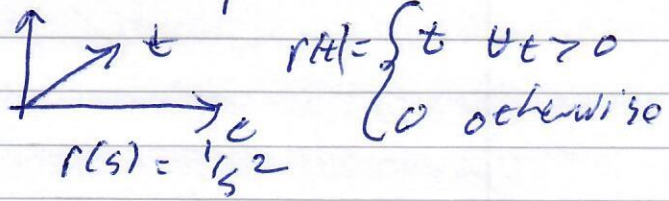 t r(t) = { t ∀t > 0
0 otherwise
t
r(s) = 1/s²